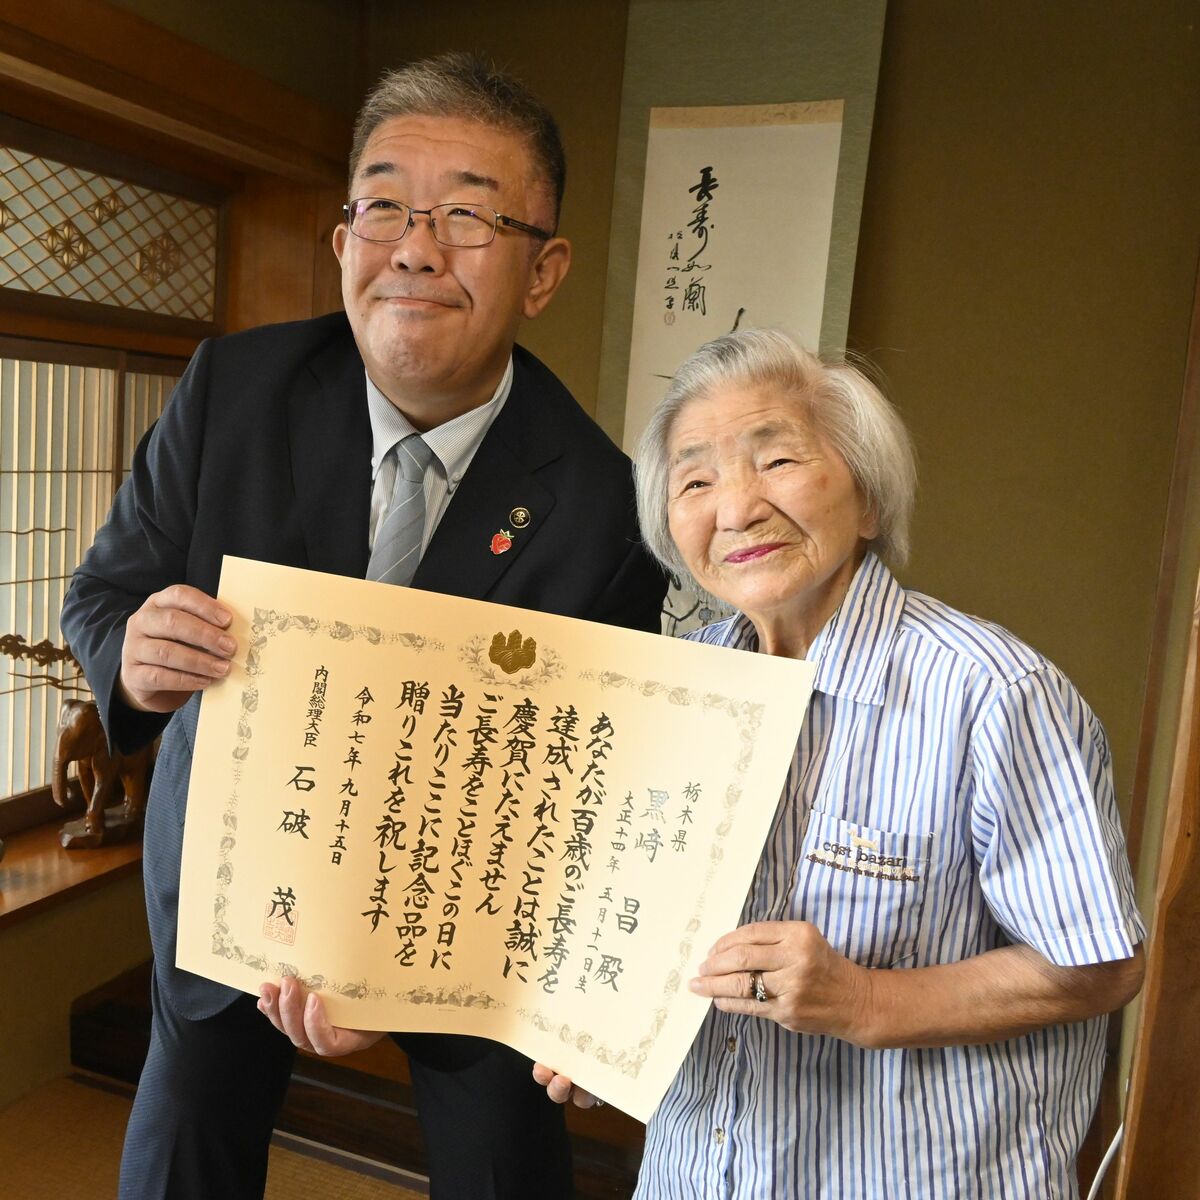 長寿如蘭
栃木県
黒崎 昌 殿
大正十四年 五月十一日生
あなたが百歳のご長寿を
達成されたことは誠に
慶賀にたえません
ご長寿をことほぐこの日に
当たりここに記念品を
贈りこれを祝します
令和七年九月十五日
内閣総理大臣 石破 茂
cost bazar